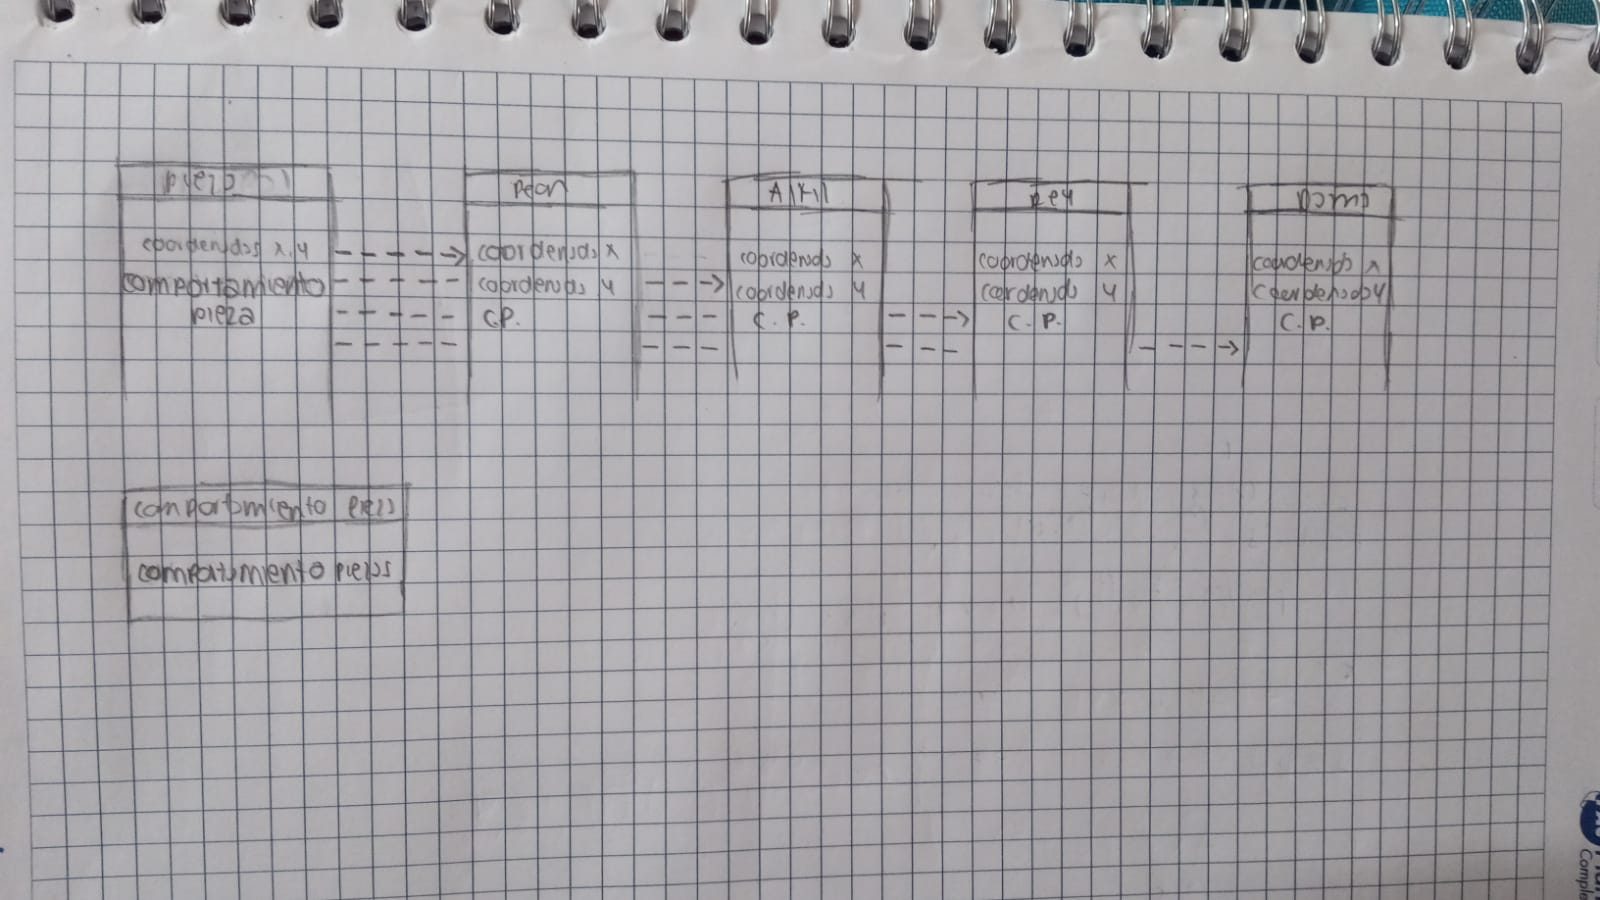 pieza
coordenadas x, y
comportamiento
pieza
peon
coordenadas x
coordenads y
C.P.
Alfil
coordenads x
coordenads y
C. P.
Rey
coordenads x
coordenads y
C. P.
coordenads x
coordenads y
C. P.
comportamiento piezs
comportamiento piezas
Comple